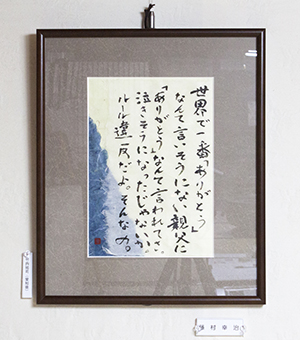 世界で一番「ありがとう」
なんて言いそうにない親父に
「ありがとう」なんて言われてさ。
泣きそうになったじゃないか
ルール違反だよ。そんなの。
村幸治